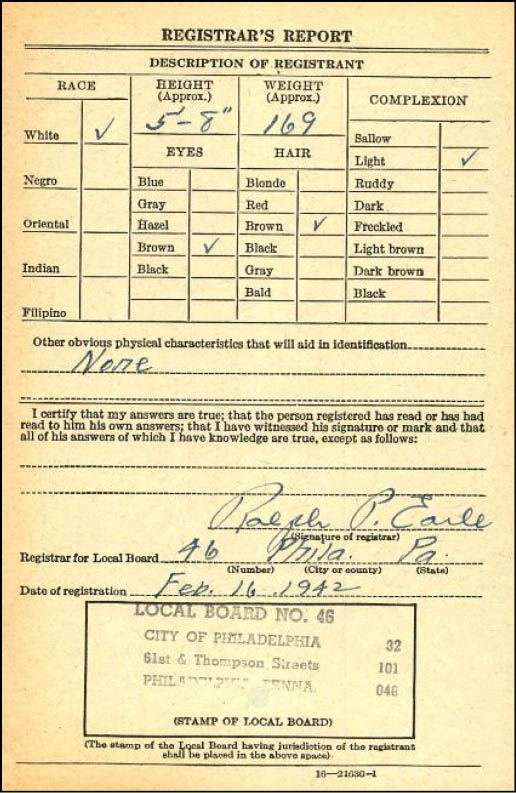 REGISTRAR'S REPORT
DESCRIPTION OF REGISTRANT
RACE
HEIGHT
(Approx.)
WEIGHT
(Approx.)
COMPLEXION
5'-8" 169
White ✓
EYES
HAIR
Sallow
Light ✓
Negro
Blue
Blonde
Ruddy
Gray
Red
Dark
Oriental
Hazel
Brown ✓
Freckled
Brown ✓
Black
Light brown
Indian
Black
Gray
Dark brown
Bald
Black
Filipino
Other obvious physical characteristics that will aid in identification
None
I certify that my answers are true; that the person registered has read or has had
read to him his own answers; that I have witnessed his signature or mark and that
all of his answers of which I have knowledge are true, except as follows:
Ralph P. Earle
(Signature of registrar)
Registrar for Local Board 46 Phila. Pa.
(Number) (City or county) (State)
Date of registration Feb. 16, 1942
LOCAL BOARD NO. 46
CITY OF PHILADELPHIA 32
61st & Thompson Streets 101
PHILADELPHIA, PENNA. 046
(STAMP OF LOCAL BOARD)
(The stamp of the Local Board having jurisdiction of the registrant
shall be placed in the above space)
16—21630-1